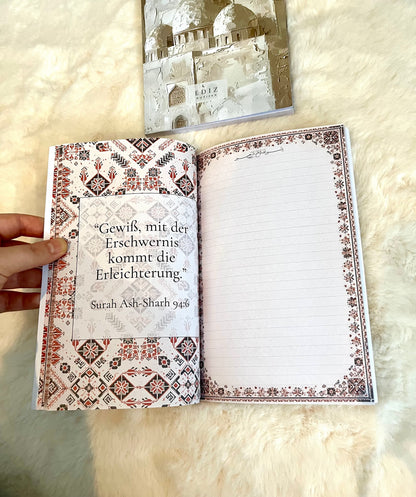 EDIZ
"Gewiß, mit der
Erschwernis
kommt die
Erleichterung."
Surah Ash-Sharh 94:6